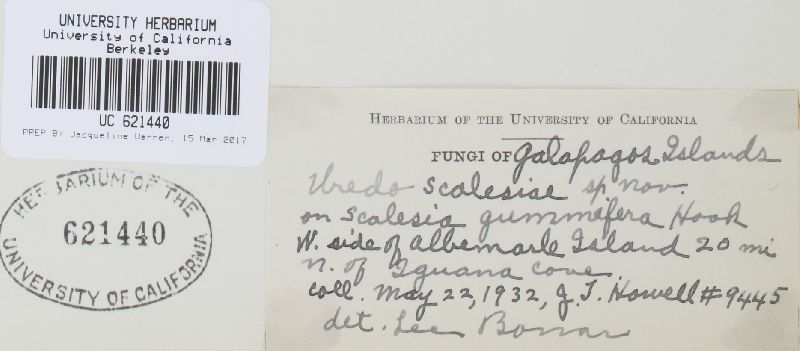 UNIVERSITY HERBARIUM
University of California
Berkeley
UC 621440
PREP BY Jacqueline Warren, 15 Mar 2017
HERBARIUM OF THE
621440
UNIVERSITY OF CALIFORNIA
HERBARIUM OF THE UNIVERSITY OF CALIFORNIA
FUNGI OF Galapagos Islands
Uredo Scalesiae sp. nov.
on Scalesia gummifera Hook
W. side of Albemarle Island 20 mi
n. of Iguana Cove
coll. May 22, 1932, J. T. Howell # 9445
det. Lee Bonar